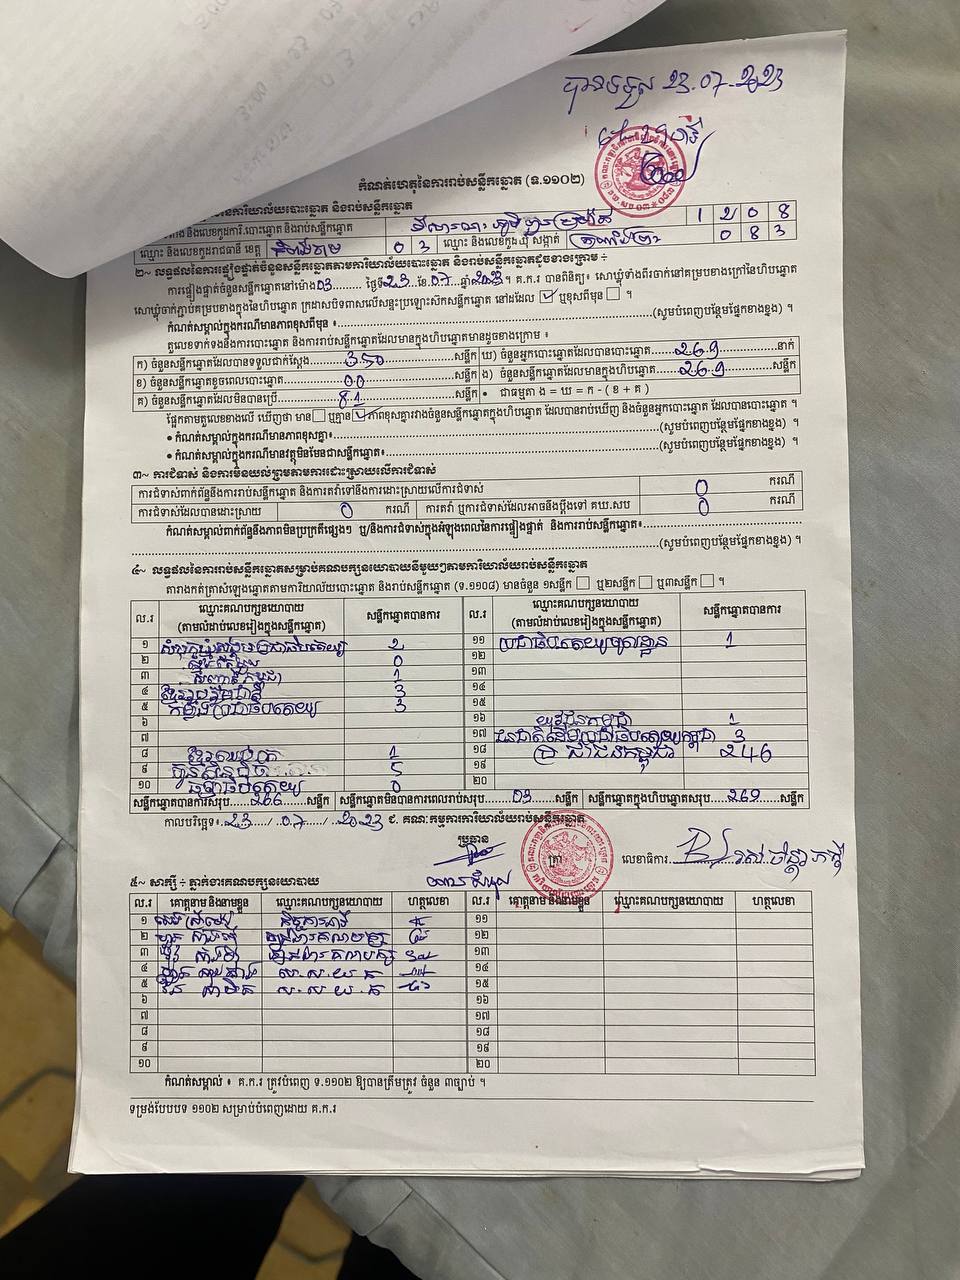 បានទទួល 23.07.2023
កំណត់ហេតុនៃការរាប់សន្លឹកឆ្នោត (ទ.១១០២)
ការិយាល័យបោះឆ្នោត និងរាប់សន្លឹកឆ្នោត
និងលេខកូដការិ.បោះឆ្នោត និងរាប់សន្លឹកឆ្នោត 1 2 0 8
ឈ្មោះ និងលេខកូដរាជធានី ខេត្ត កំពង់ចាម 0 3 ឈ្មោះ និងលេខកូដឃុំ សង្កាត់ 0 8 3
២~ លទ្ធផលនៃការផ្ទៀងផ្ទាត់ចំនួនសន្លឹកឆ្នោតតាមការិយាល័យបោះឆ្នោត និងរាប់សន្លឹកឆ្នោតដូចខាងក្រោម ៖
ការផ្ទៀងផ្ទាត់ចំនួនសន្លឹកឆ្នោតនៅម៉ោង 03 ថ្ងៃទី 23 ខែ 07 ឆ្នាំ 2023 ។ គ.ក.រ បានពិនិត្យ សោឃ្លុំទាំងពីរចាក់នៅគម្របខាងក្រៅនៃហិបឆ្នោត
សោឃ្លុំចាក់ភ្ជាប់គម្របខាងក្នុងនៃហិបឆ្នោត ក្រដាសបិទពាសលើសន្ទះប្រឡោះសិកសន្លឹកឆ្នោត នៅដដែល ✓ ឬខុសពីមុន ។
កំណត់សម្គាល់ក្នុងករណីមានភាពខុសពីមុន ៖ (សូមបំពេញបន្ថែមផ្នែកខាងខ្នង) ។
តួលេខទាក់ទងនឹងការបោះឆ្នោត និងការរាប់សន្លឹកឆ្នោតដែលមានក្នុងហិបឆ្នោតមានដូចខាងក្រោម ៖
ក) ចំនួនសន្លឹកឆ្នោតដែលបានទទួលជាក់ស្តែង 350 សន្លឹក ឃ) ចំនួនអ្នកបោះឆ្នោតដែលបានបោះឆ្នោត 269 នាក់
ខ) ចំនួនសន្លឹកឆ្នោតខូចពេលបោះឆ្នោត 00 សន្លឹក ង) ចំនួនសន្លឹកឆ្នោតដែលមានក្នុងហិបឆ្នោត 269 សន្លឹក
គ) ចំនួនសន្លឹកឆ្នោតដែលមិនបានប្រើ 81 សន្លឹក • ជាធម្មតា ង = ឃ = ក - ( ខ + គ )
ផ្អែកតាមតួលេខខាងលើ ឃើញថា មាន ឬគ្មាន ✓ ភាពខុសគ្នារវាងចំនួនសន្លឹកឆ្នោតក្នុងហិបឆ្នោត ដែលបានរាប់ឃើញ និងចំនួនអ្នកបោះឆ្នោត ដែលបានបោះឆ្នោត ។
• កំណត់សម្គាល់ក្នុងករណីមានភាពខុសគ្នា៖ (សូមបំពេញបន្ថែមផ្នែកខាងខ្នង) ។
• កំណត់សម្គាល់ក្នុងករណីមានវត្ថុមិនមែនជាសន្លឹកឆ្នោត៖ (សូមបំពេញបន្ថែមផ្នែកខាងខ្នង) ។
៣~ ការជំទាស់ និងការមិនយល់ព្រមតាមការដោះស្រាយលើការជំទាស់
ការជំទាស់ពាក់ព័ន្ធនឹងការរាប់សន្លឹកឆ្នោត និងការតវ៉ាទៅនឹងការដោះស្រាយលើការជំទាស់ 0 ករណី
ការជំទាស់ដែលបានដោះស្រាយ 0 ករណី ការតវ៉ា ឬការជំទាស់ដែលអាចនឹងប្តឹងទៅ គឃ.សប 0 ករណី
កំណត់សម្គាល់ពាក់ព័ន្ធនឹងភាពមិនប្រក្រតីផ្សេងៗ ឬ/និងការជំទាស់ក្នុងអំឡុងពេលនៃការផ្ទៀងផ្ទាត់ និងការរាប់សន្លឹកឆ្នោត៖
(សូមបំពេញបន្ថែមផ្នែកខាងខ្នង) ។
៤~ លទ្ធផលនៃការរាប់សន្លឹកឆ្នោតសម្រាប់គណបក្សនយោបាយនីមួយៗតាមការិយាល័យរាប់សន្លឹកឆ្នោត
តារាងកត់ត្រាសំឡេងឆ្នោតតាមការិយាល័យបោះឆ្នោត និងរាប់សន្លឹកឆ្នោត (ទ.១១០៨) មានចំនួន ១សន្លឹក ឬ២សន្លឹក ឬ៣សន្លឹក ។
ល.រ ឈ្មោះគណបក្សនយោបាយ សន្លឹកឆ្នោតបានការ ល.រ ឈ្មោះគណបក្សនយោបាយ សន្លឹកឆ្នោតបានការ
(តាមលំដាប់លេខរៀងក្នុងសន្លឹកឆ្នោត) (តាមលំដាប់លេខរៀងក្នុងសន្លឹកឆ្នោត)
១ សំបុកឃ្មុំសង្គមប្រជាធិបតេយ្យ 2 ១១ ប្រជាធិបតេយ្យមូលដ្ឋាន 1
២ ខ្មែររួបរួម 0 ១២
៣ សញ្ជាតិកម្ពុជា 1 ១៣
៤ ខ្មែររួបរួមជាតិ 3 ១៤
៥ កម្លាំងប្រជាធិបតេយ្យ 3 ១៥
៦ ១៦ យុវជនកម្ពុជា 1
៧ ១៧ ជនជាតិដើមប្រជាធិបតេយ្យកម្ពុជា 3
៨ ខ្មែរឈប់ក្រ 1 ១៨ ប្រជាជនកម្ពុជា 246
៩ ហ៊្វុនស៊ិនប៉ិច 5 ១៩
១០ ធម្មាធិបតេយ្យ 0 ២០
សន្លឹកឆ្នោតបានការសរុប 266 សន្លឹក សន្លឹកឆ្នោតមិនបានការពេលរាប់សរុប 03 សន្លឹក សន្លឹកឆ្នោតក្នុងហិបឆ្នោតសរុប 269 សន្លឹក
កាលបរិច្ឆេទ៖ 23 / 07 / 2023 ជ. គណៈកម្មការការិយាល័យរាប់សន្លឹកឆ្នោត
ប្រធាន ត្រា លេខាធិការ
៥~ សាក្សី ៖ ភ្នាក់ងារគណបក្សនយោបាយ
ល.រ គោត្តនាម និងនាមខ្លួន ឈ្មោះគណបក្សនយោបាយ ហត្ថលេខា ល.រ គោត្តនាម និងនាមខ្លួន ឈ្មោះគណបក្សនយោបាយ ហត្ថលេខា
១ ១១
២ ១២
៣ ១៣
៤ ស.ស.យ.ក ១៤
៥ ស.ស.យ.ក ១៥
៦ ១៦
៧ ១៧
៨ ១៨
៩ ១៩
១០ ២០
កំណត់សម្គាល់ ៖ គ.ក.រ ត្រូវបំពេញ ទ.១១០២ ឱ្យបានត្រឹមត្រូវ ចំនួន ៣ច្បាប់ ។
ទម្រង់បែបបទ ១១០២ សម្រាប់បំពេញដោយ គ.ក.រ